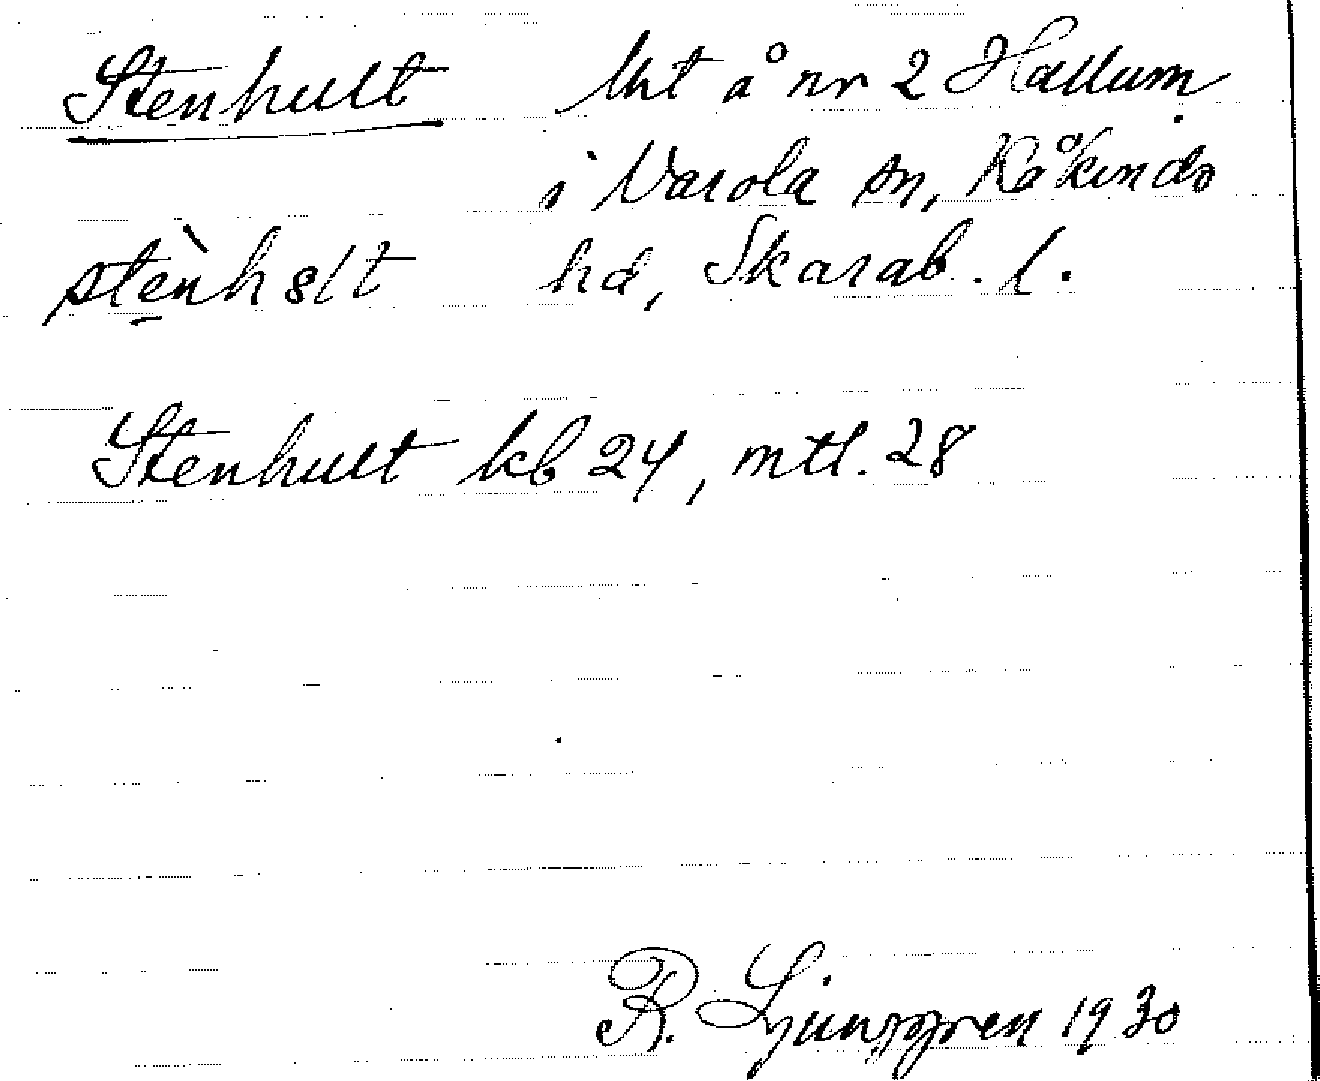 Stenhult lht å nr 2 Hallum
i Varola sn, Kåkinds
stènhslt hd, Skarab. l.
Stenhult kb 24, mtl. 28
R. Ljunggren 1930